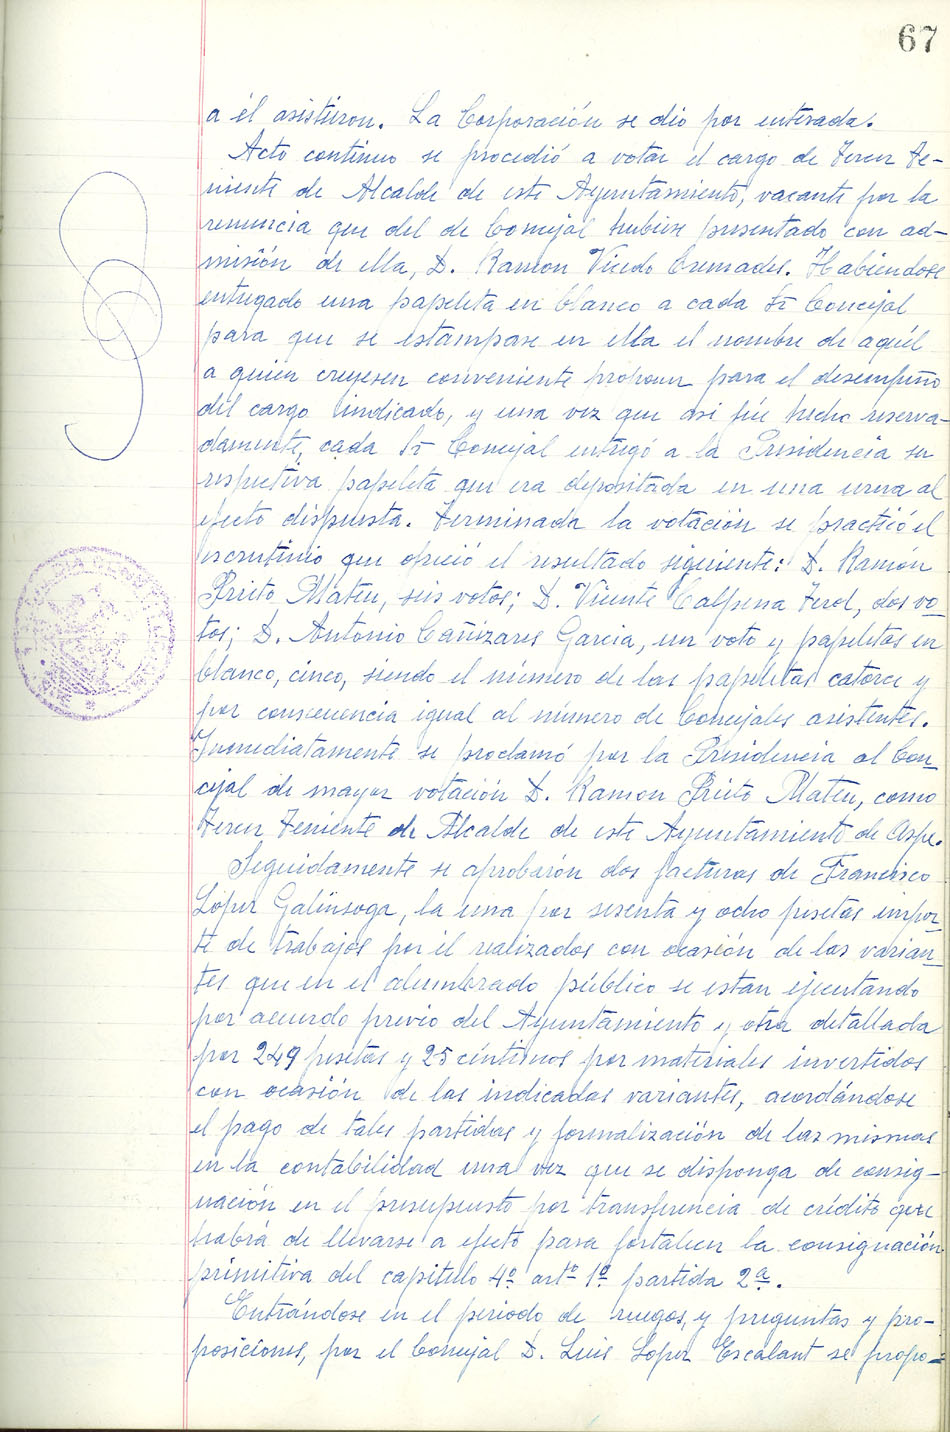 67
a él asistieron. La Corporación se dió por enterada.
Acto continuo se procedió a votar el cargo de Tercer Te-
niente de Alcalde de este Ayuntamiento, vacante por la
renuncia que del de Concejal hubiese presentado con ad-
misión de ella, D. Ramon Vicedo Cremades. Habiendose
entregado una papeleta en blanco a cada Sr Concejal
para que se estampase en ella el nombre de aquél
a quien creyesen conveniente proponer para el desempeño
del cargo indicado, y una vez que asi fué hecho reserva-
damente, cada Sr Concejal entregó a la Presidencia su
respectiva papeleta que era depositada en una urna al
efecto dispuesta. Terminada la votación se practicó el
escrutinio que ofreció el resultado siguiente: D. Ramón
Prieto Mateu, seis votos; D. Vicente Calpena Terol, dos vo-
tos; D. Antonio Cañizares Garcia, un voto y papeletas en
blanco, cinco, siendo el número de las papeletas catorce y
por consecuencia igual al número de Concejales asistentes.
Inmediatamente se proclamó por la Presidencia al Con-
cejal de mayor votación D. Ramon Prieto Mateu, como
Tercer Teniente de Alcalde de este Ayuntamiento de Aspe.
Seguidamente se aprobarón dos facturas de Francisco
López Galinsoga, la una por sesenta y ocho pesetas impor-
te de trabajos por él realizados con ocasión de las varian-
tes que en el alumbrado público se estan ejecutando
por acuerdo previo del Ayuntamiento y otra detallada
por 249 pesetas y 25 céntimos por materiales invertidos
con ocasión de las indicadas variantes, acordándose
el pago de tales partidas y formalización de las mismas
en la contabilidad una vez que se disponga de consig-
nación en el presupuesto por transferencia de crédito que
habrá de llevarse a efecto para fortalecer la consignación
primitiva del capitulo 4º artº 1º partida 2ª.
Entrándose en el periodo de ruegos, y preguntas y pro-
posiciones, por el Concejal D. Luis Lopez Escalant se propo-